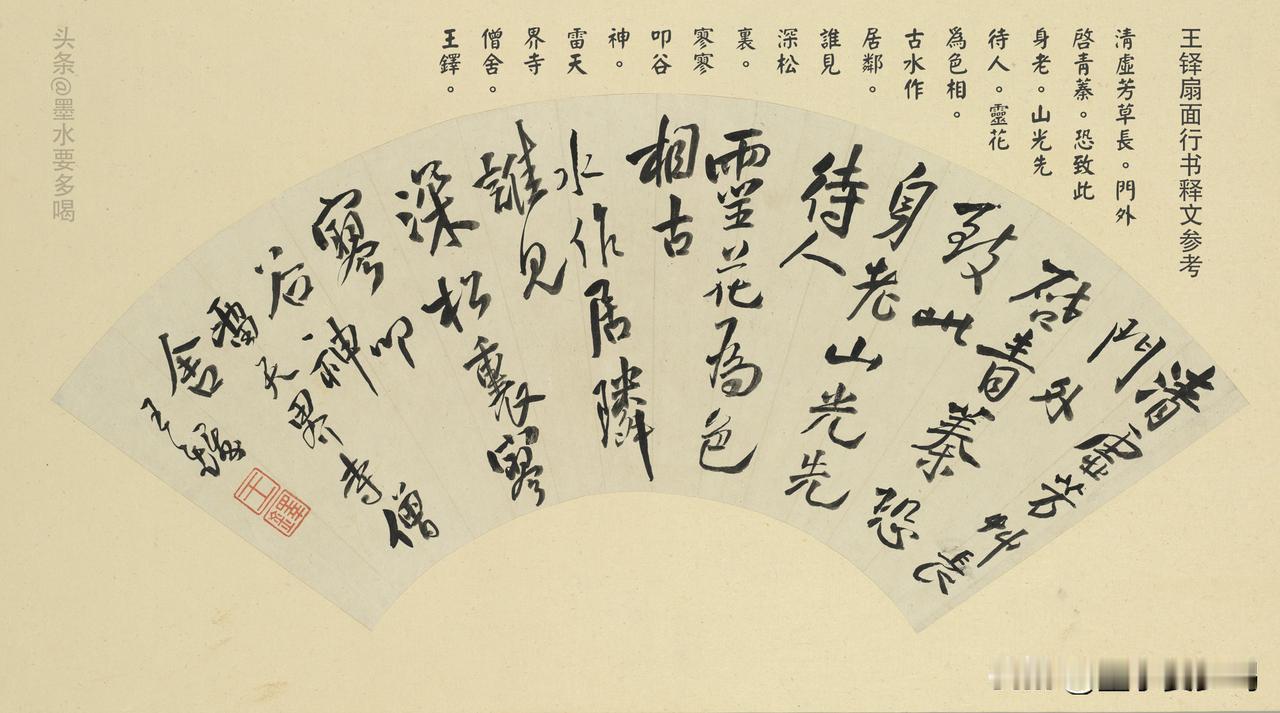 王铎扇面行书释文参考
清虛芳草長。門外
啓青蓁。恐致此
身老。山光先
待人。靈花
爲色相。
古水作
居鄰。
誰見
深松
裏。
寥寥
叩谷
神。
雷天
界寺
僧舍。
王鐸。
清虛芳艸長
門外
啓青蓁恐
致此
身老山光先
待人
靈花為色
相古
水作居隣
誰見
深松裏寥
寥叩
谷神
雷天界寺僧
舍
王鐸
王鐸
头条@墨水要多喝